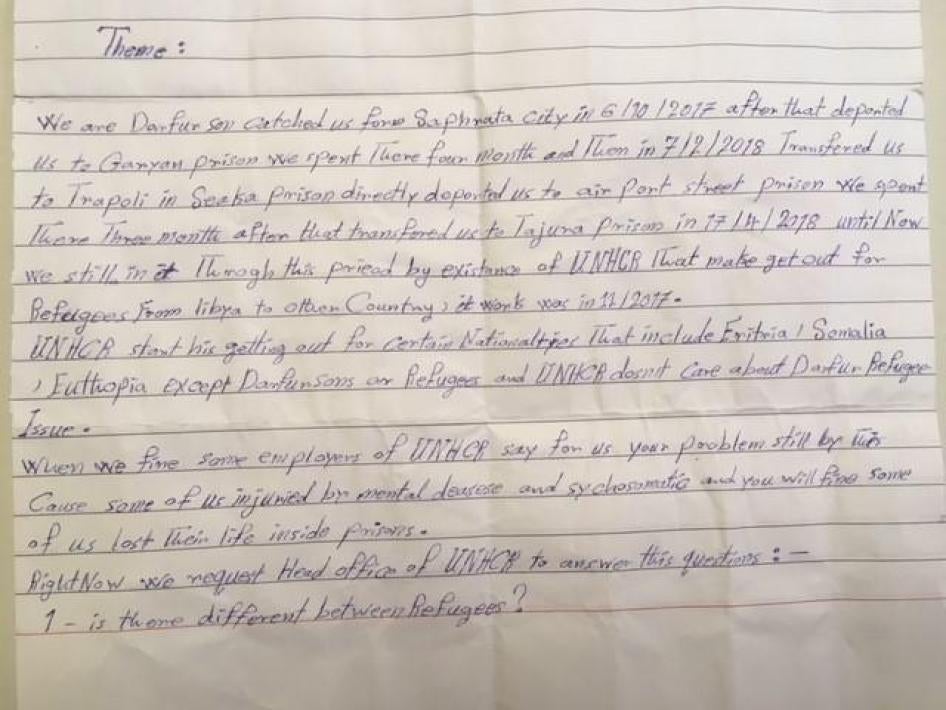 Theme :
We are Darfur son catched us form Saphrata city in 6/10/2017 after that deported
us to Garyan prison we spent There four month and Then in 7/2/2018 Transfered us
to Trapoli in Seeka prison directly doported us to air port street prison we spent
There Three month after that transfered us to Tajura prison in 17/4/2018 until Now
we still in it Throgh this priead by existance of UNHCR That make get out for
Refugees From libya to other Country, it work was in 11/2017.
UNHCR start his getting out for certain Nationalties That include Eritria / Somalia
, Euthiopia except Darfursons or Refugees and UNHCR dosnit care about Darfur Refugee
Issue .
When we fine some employers of UNHCR say for us your problem still by this
Cause some of us injuried by mental deasese and sychosomatic and you will fine some
of us lost their life inside prisons .
Right Now we request Head office of UNHCR to answer this questions : -
1 - is there different between Refugees ?